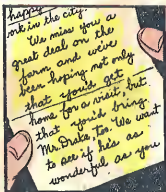 happy
ork in the city.
We miss you a
great deal on the
farm and we've
been hoping not only
that you'd get
home for a visit, but
that you'd bring
Mr. Drake, too. We want
to see if he's as
wonderful as you